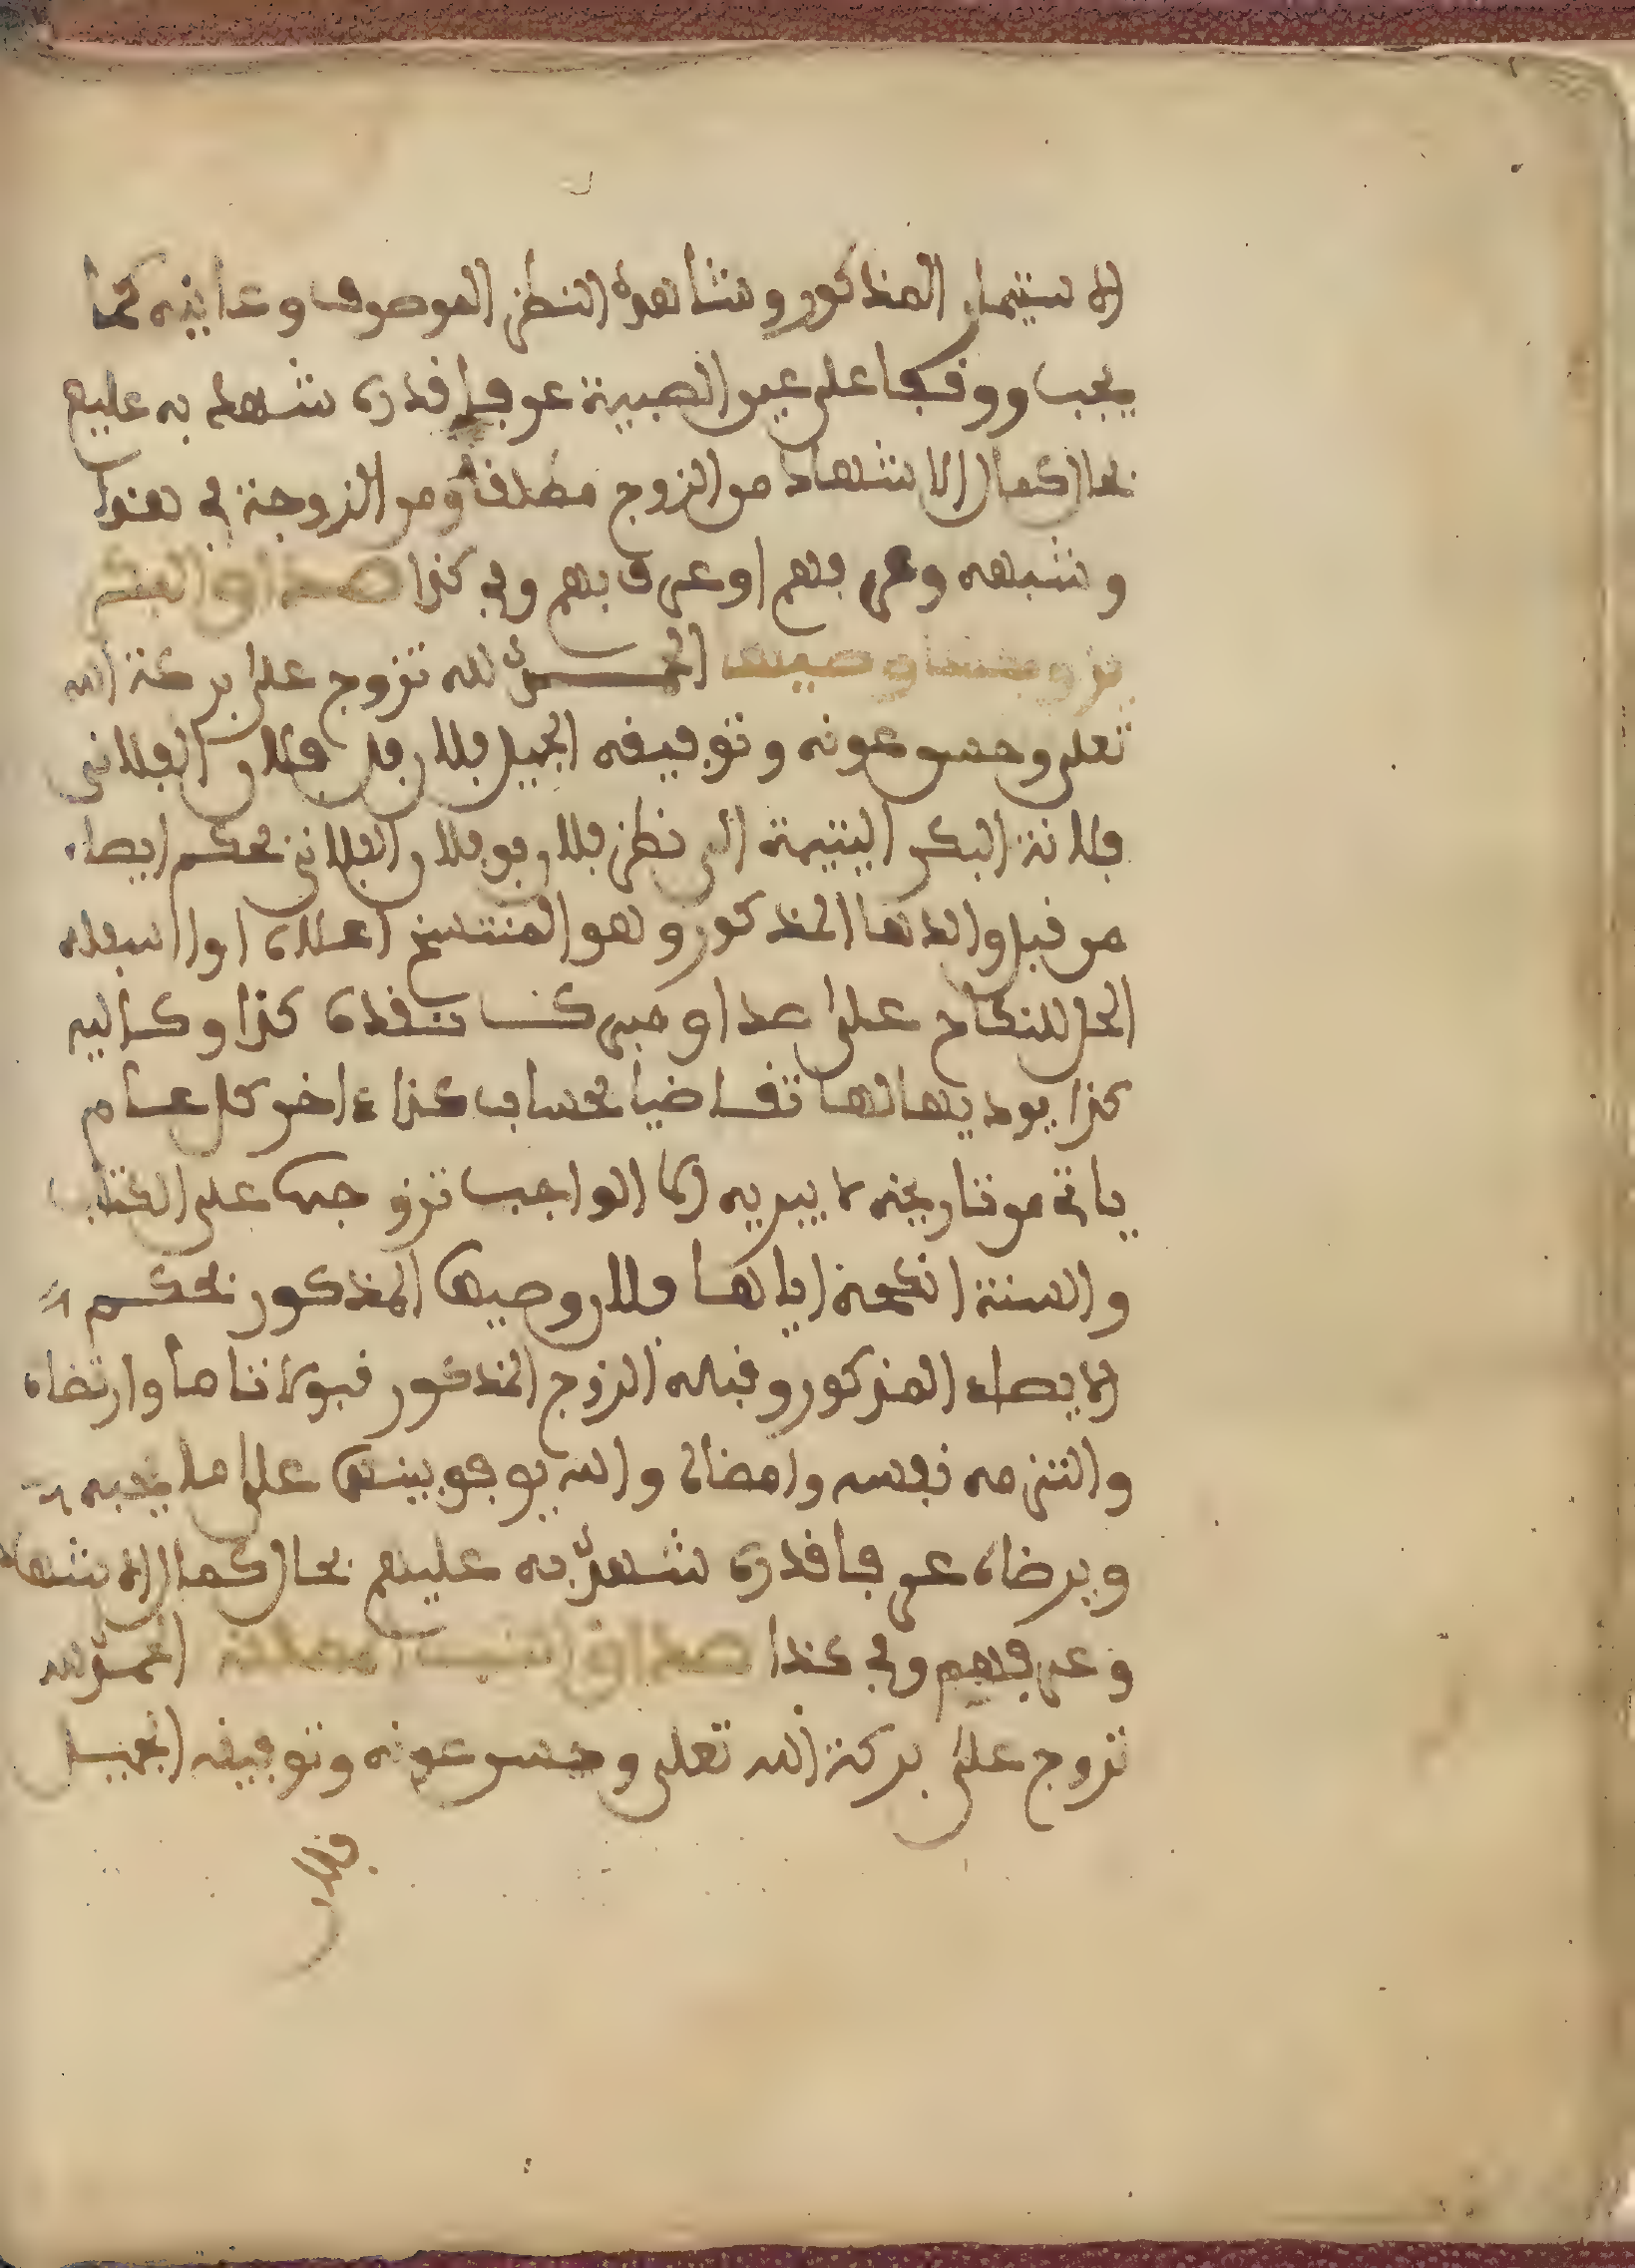 الاستيمار المذكور وشاهد النظر الموصوف وعاينه كما
يجب ووقفا على عين الصبية عرفا قدره شهد به عليهم
بحال كمال الاشهاد من الزوج مطلقا ومن الزوجة في هذا
وشبهه وعرفهم او عرف بهم وفي كذا صداق البكر
يزوجها وصيها الحمد لله تزوج على بركة الله
تعلى وحسن عونه وتوفيقه الجميل فلان بن فلان الفلاني
فلانة البكر اليتيمة الى نظر فلان بن فلان الفلاني بحكم ايصاء
من قبل والدها المذكور وهو المنتسخ اعلاه او اسفله
الحل للنكاح على صداق مبره كذا نقده كذا وكاليه
كذا يوديها لها تقاضيا بحساب كذا ءاخر كل عام
ياتي من تاريخه لا يبريه الا الواجب تزوجها على الكتاب
والسنة انكحه اياها فلان وصيها المذكور بحكم
الايصاء المذكور وقبله الزوج المذكور قبولا تاما وارتضاه
والتزمه نفسه وامضاه والله يوفق بينهما على ما يحبه
ويرضاه عرفا قدره شهد به عليهم بحال كمال الاشهاد
وعرفهم وفي كذا صداق الثيب المطلقة الحمد لله
تزوج على بركة الله تعلى وحسن عونه وتوفيقه الجميل
فلان